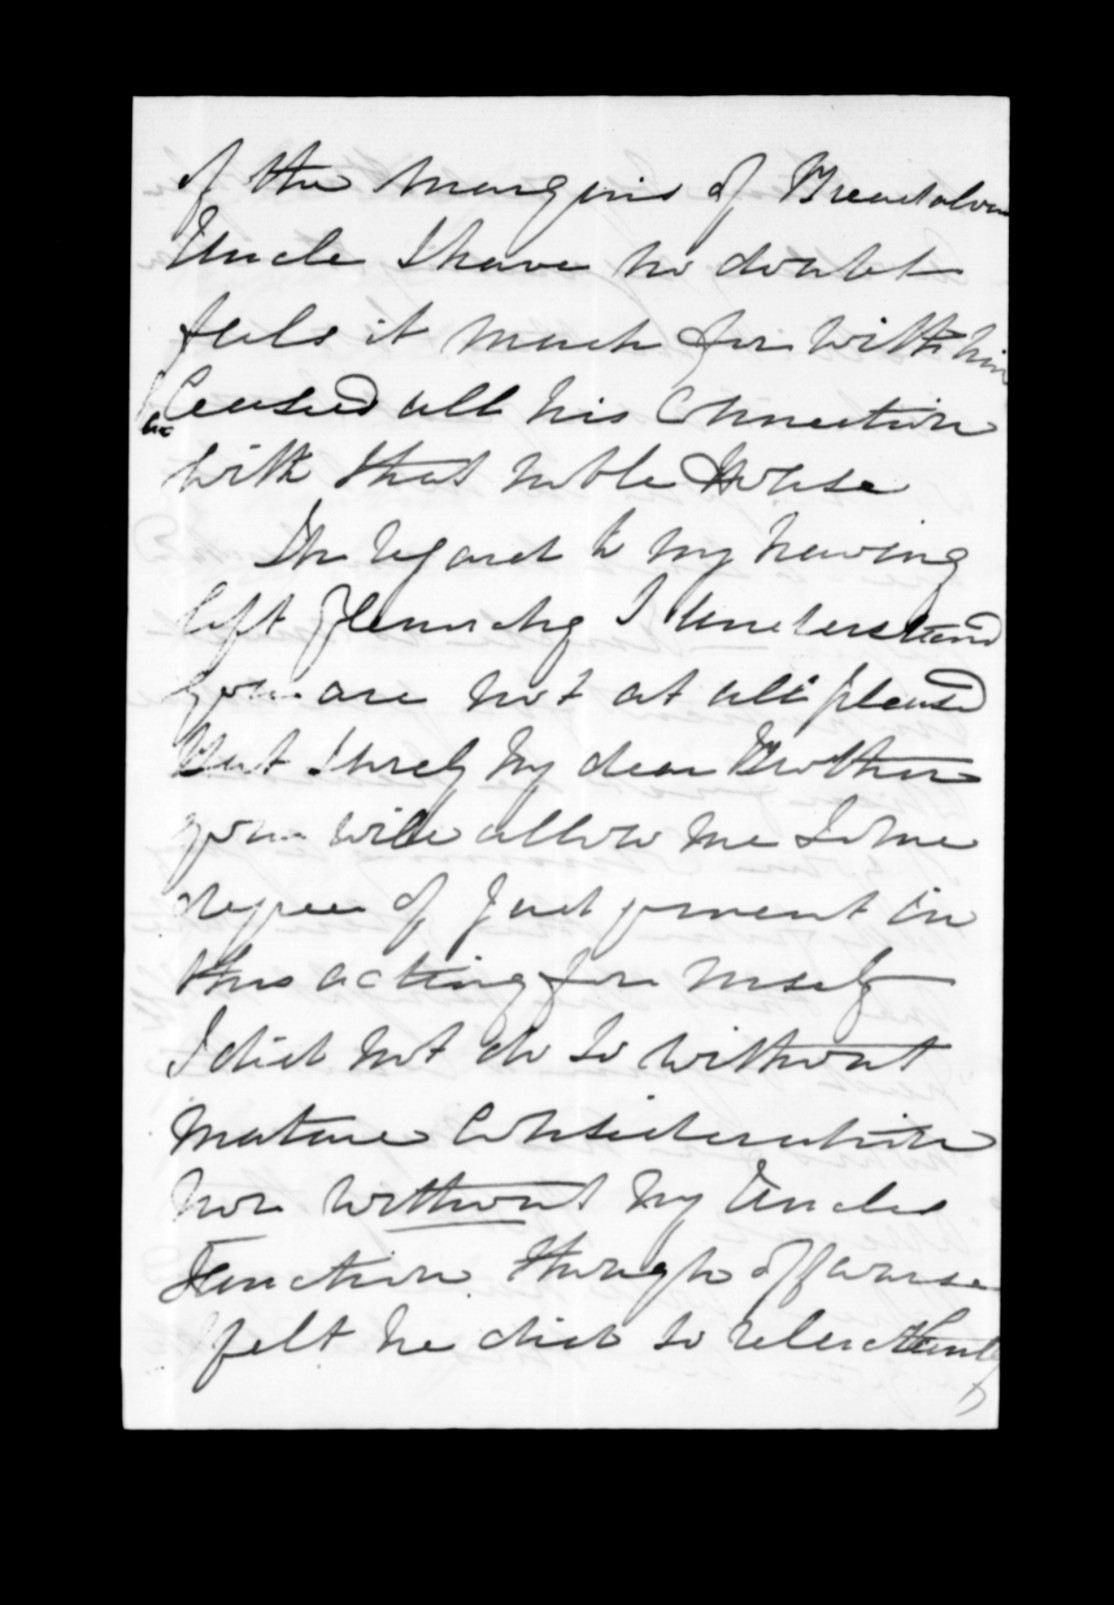 of the Marquis of Breadalbane
Uncle I have no doubt
feels it much for with him
he Ceased all his Connection
with that noble House
In regard to my having
left I understand
you are not at all pleased
But Surely my dear Brother
you will allow me Some
degree of Judgment in
thus acting for mself
I did not do so without
mature Consideration
nor without my Uncles
Sanction though of course
I felt he did so reluctantly